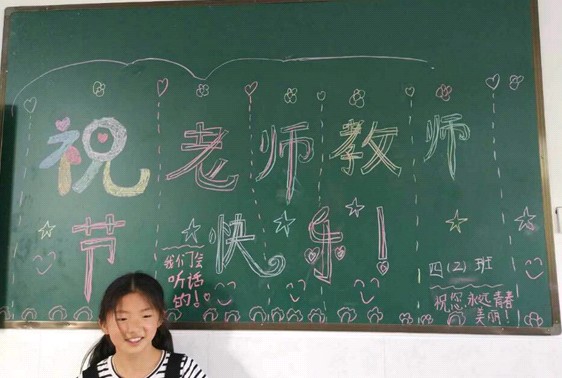 祝老师教师
节快乐！
我们会
听话
的！
四（2）班
祝您，永远青春
美丽！